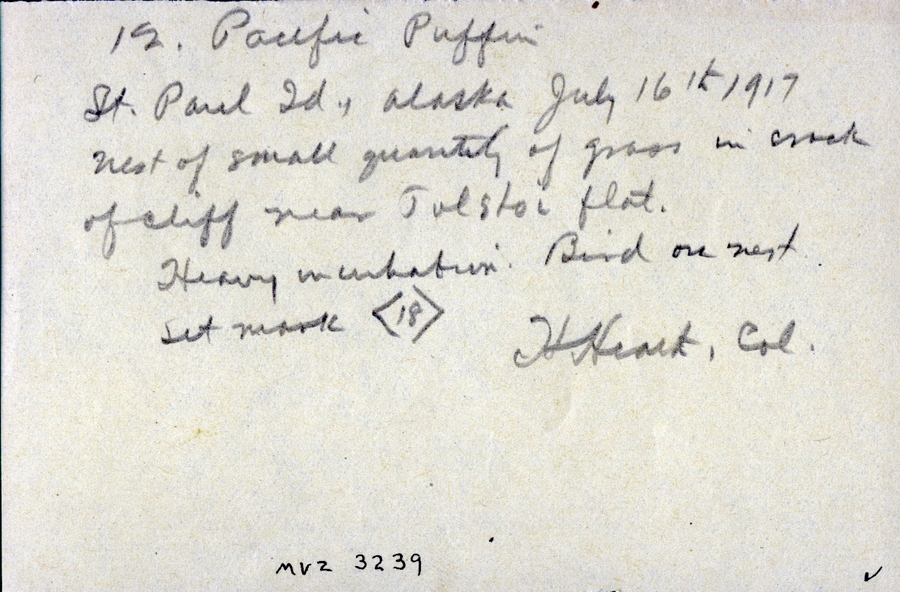 19. Pacific Puffin
St. Paul Id., Alaska July 16th 1917
Nest of small quantity of grass in crack
of cliff near Tolstoi flat.
Heavy incubation. Bird on nest.
Set mark <18>
Col.
MVZ 3239
✓